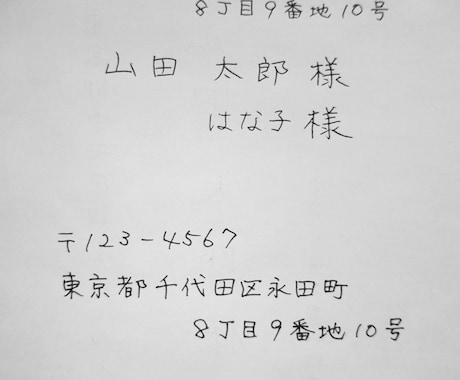 8丁目9番地10号
山田 太郎 様
はな子 様
〒123-4567
東京都千代田区永田町
8丁目9番地10号